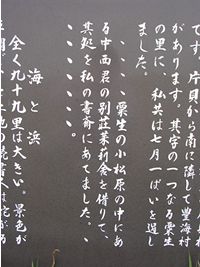 です。片貝から南に隣して豊海村
があります。其字の一つなる粟生
の里に、私共は七月一ぱいを過し
ました。
、、、、粟生の小松原の中にあ
る中西君の別荘茉莉舎を借りて、
其処を私の書斎にあてました。、
、、、、、
海と浜
全く九十九里は大きい。景色が